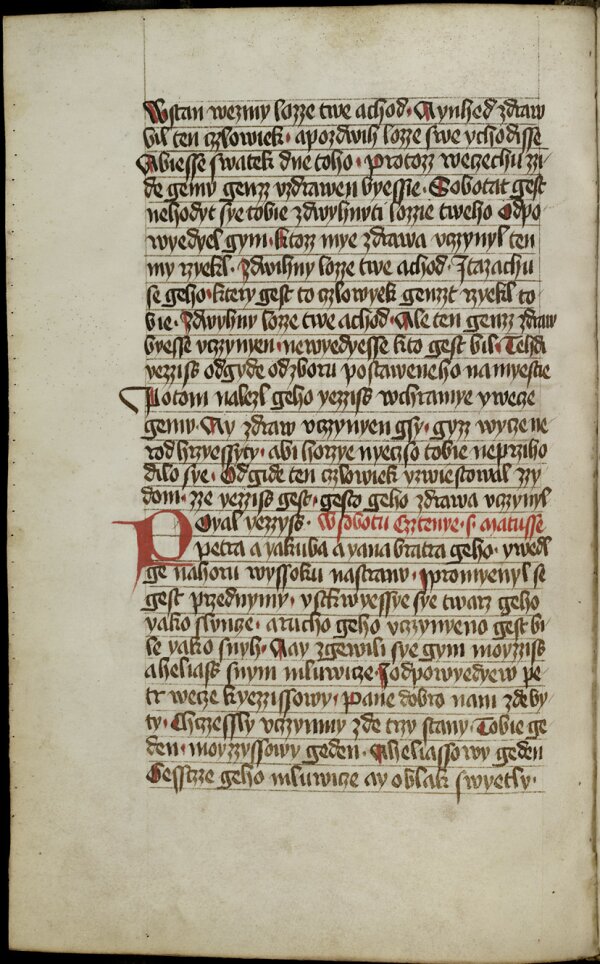 Wstan wezmy lozze twe achod · Aynhed zdraw
bil ten czlowiek · apozdwih lozze swe ychodisse
Abiesse swatek dne toho · Protozz weczechu zzi
de gemu genzz vzdrawen byessie · Sobotat gest
nehodyt sye tobie zdwyhnyti lozzie tweho Odpo
wyedyel gym · Ktozz mye zdrawa vczynyl ten
my rzyekl · Zdwihny lozze twe achod · Itazachu
se geho · ktery gest to czlowyek genzzt rzyekl to
bie · Zdwyhny lozze twe achod · Ale ten genzz zdraw
byesse vczynyen · newyedyesse kto gest bil · Tehdi
yezziss odgyde odzboru postaweneho namyestie
Potom nalezl geho yezziss wchramye ywecze
gemu · Ay zdraw vczynyen gsy · gyzz wycze ne
rod hrzyessyty · abi horzye nyeczso tobie neprziho
dilo sye · Odgide ten czlowiek yzwiestowal zzy
dom · zze yezziss gest · gesto geho zdrawa vczynyl
Poyal yezzyss · W sobotu Cztenye · s · matusse
petra a yakuba a yana bratra geho · ywedl
ge nahoru wyssoku nastranu · Ipromyenyl se
gest przednymy · vstkwyessye sye twarz geho
yako slyncze · arucho geho vczynyeno gest bi
le yako snyh · Aay zgewili sye gym moyzziss
aheliass snym mluwicze · Iodpowyedyew pe
tr wecze kyezzissowy · Pane dobro nam zdeby
ty · Chczessly vczynmy zde trzy stany · Tobie ge
den · moyzzyssowy geden · Aheliassowy geden
Gesstcze geho mluwicze ay oblak swyetly ·